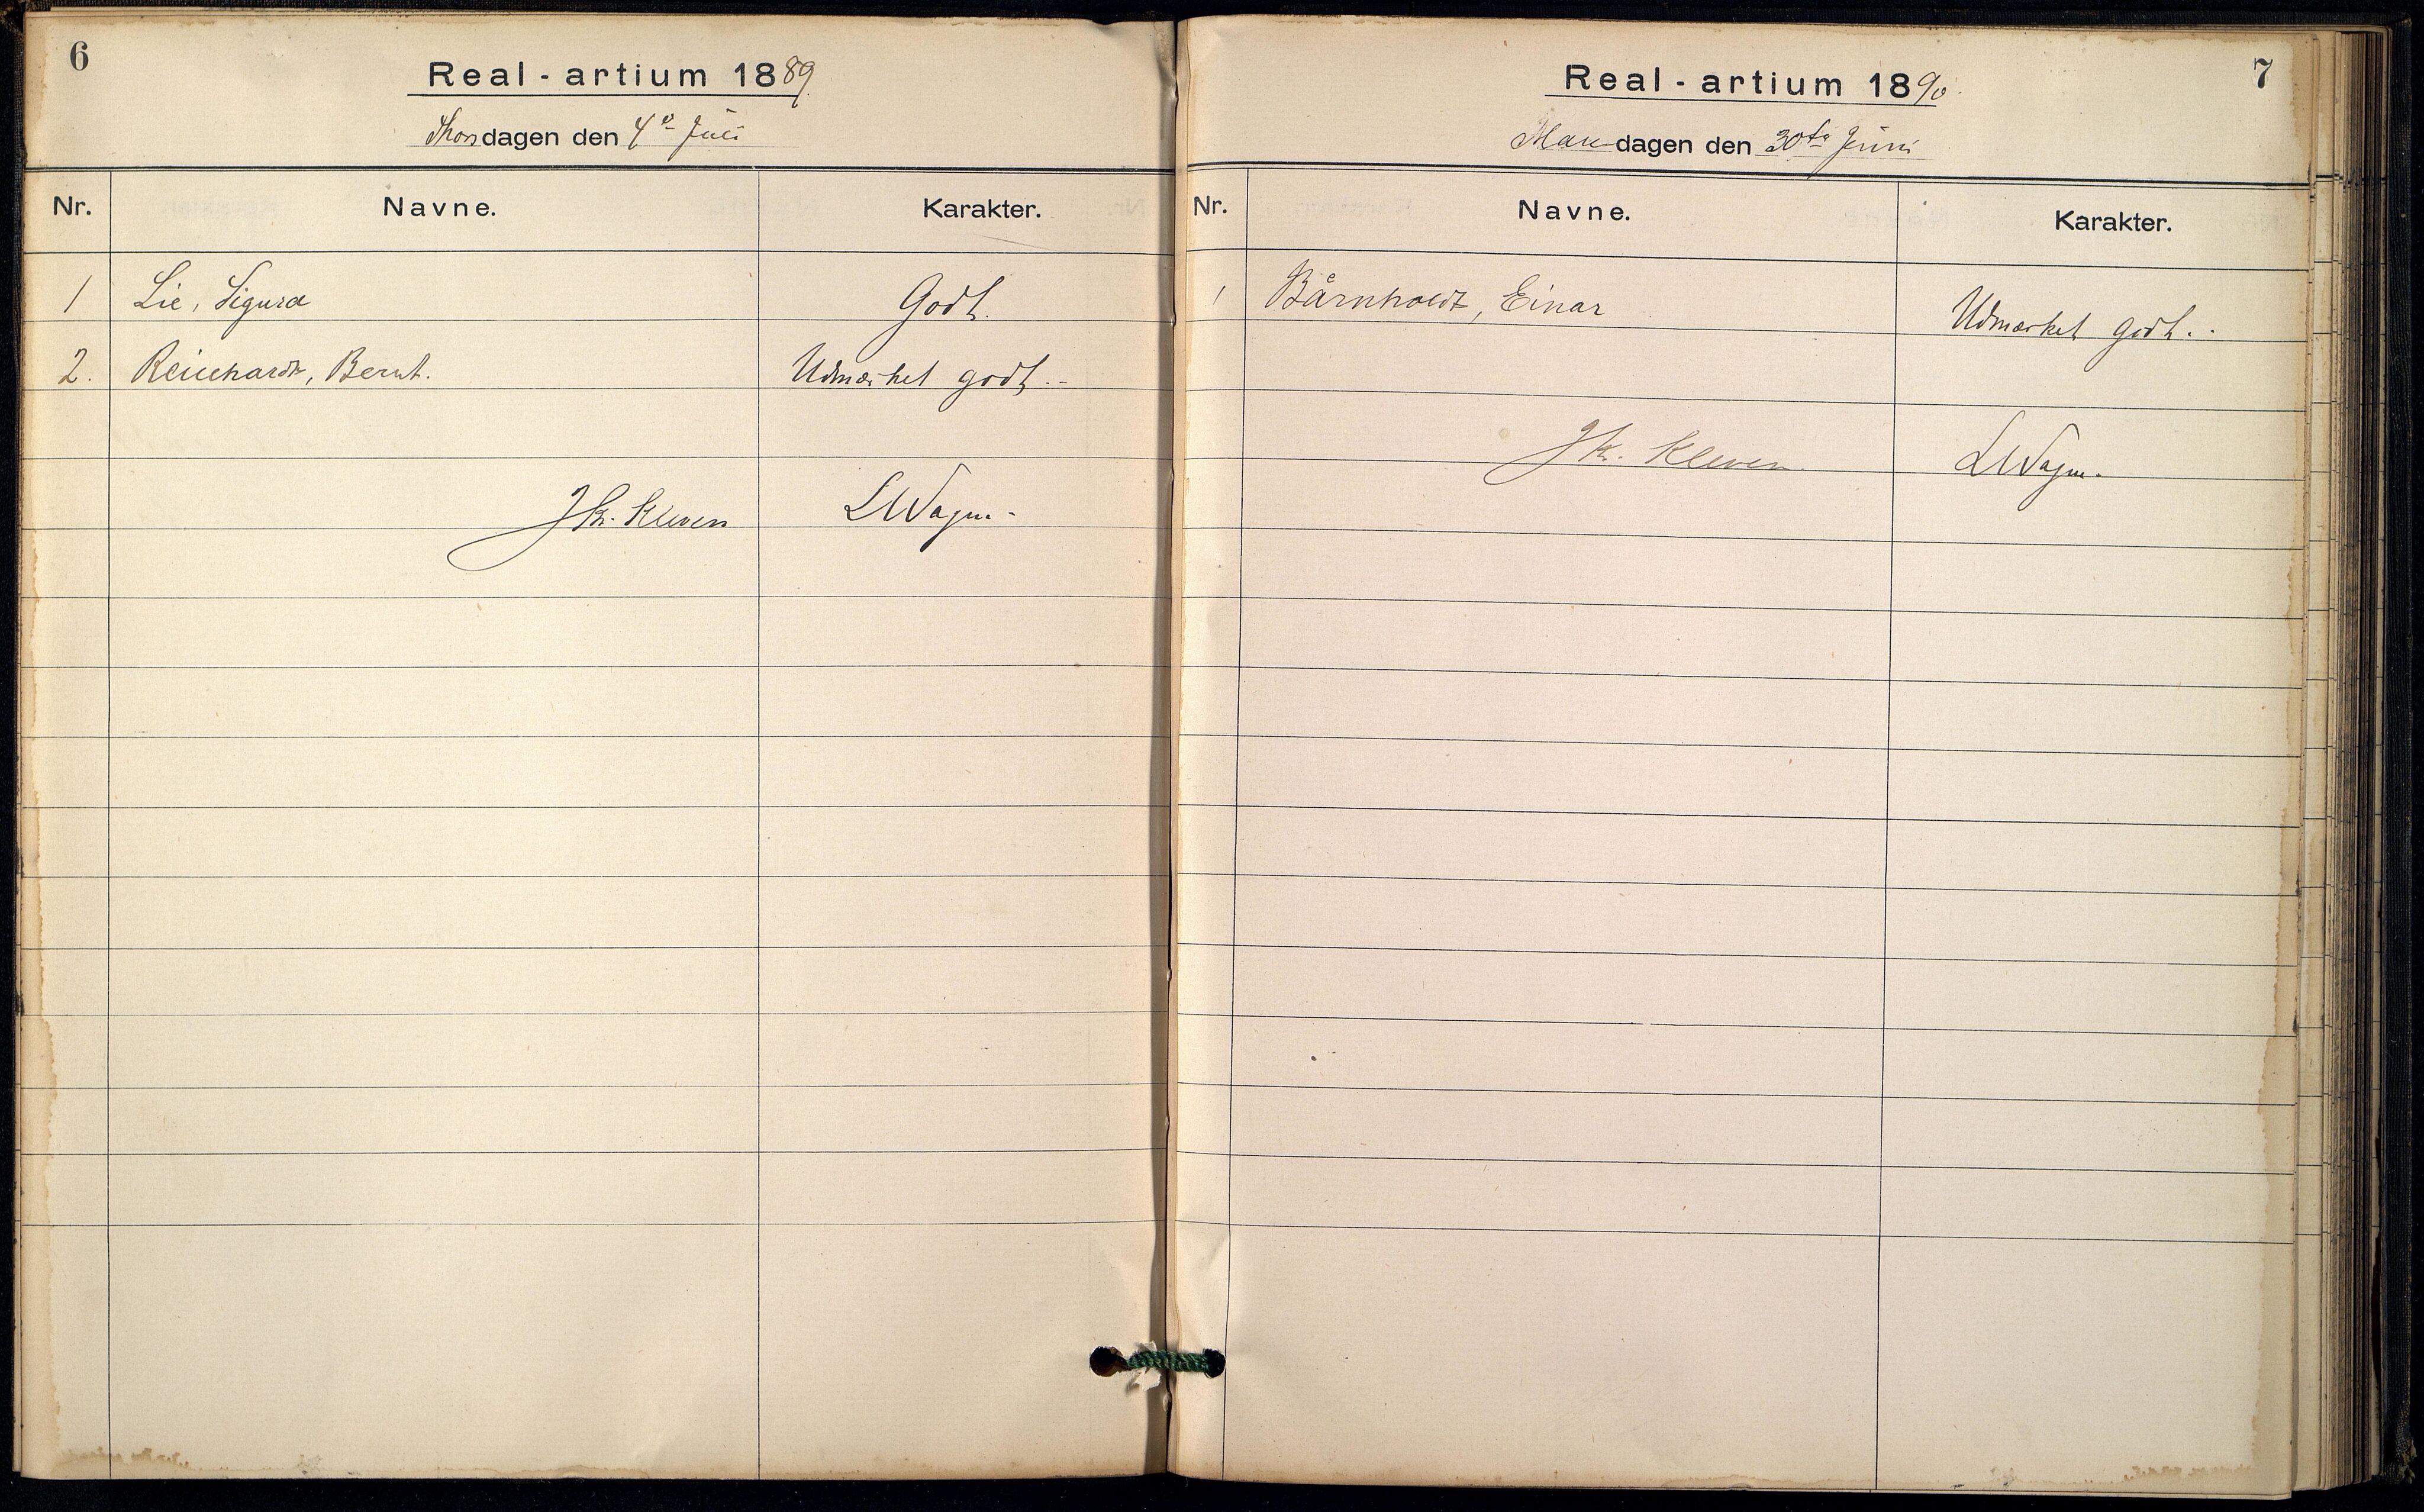 6
Real - artium 1889.
Thorsdagen den 4de Juli
Nr. Navne. Karakter.
1 Lie, Sigurd Godt.
2. Reinhardt, Bernt. Udmærket godt.-
J Kr. Kleven
7
Real - artium 1890.
Mandagen den 30te Juni
Nr. Navne. Karakter.
1 Bårnholdt, Einar Udmærket godt. .
J Kr. Kleven